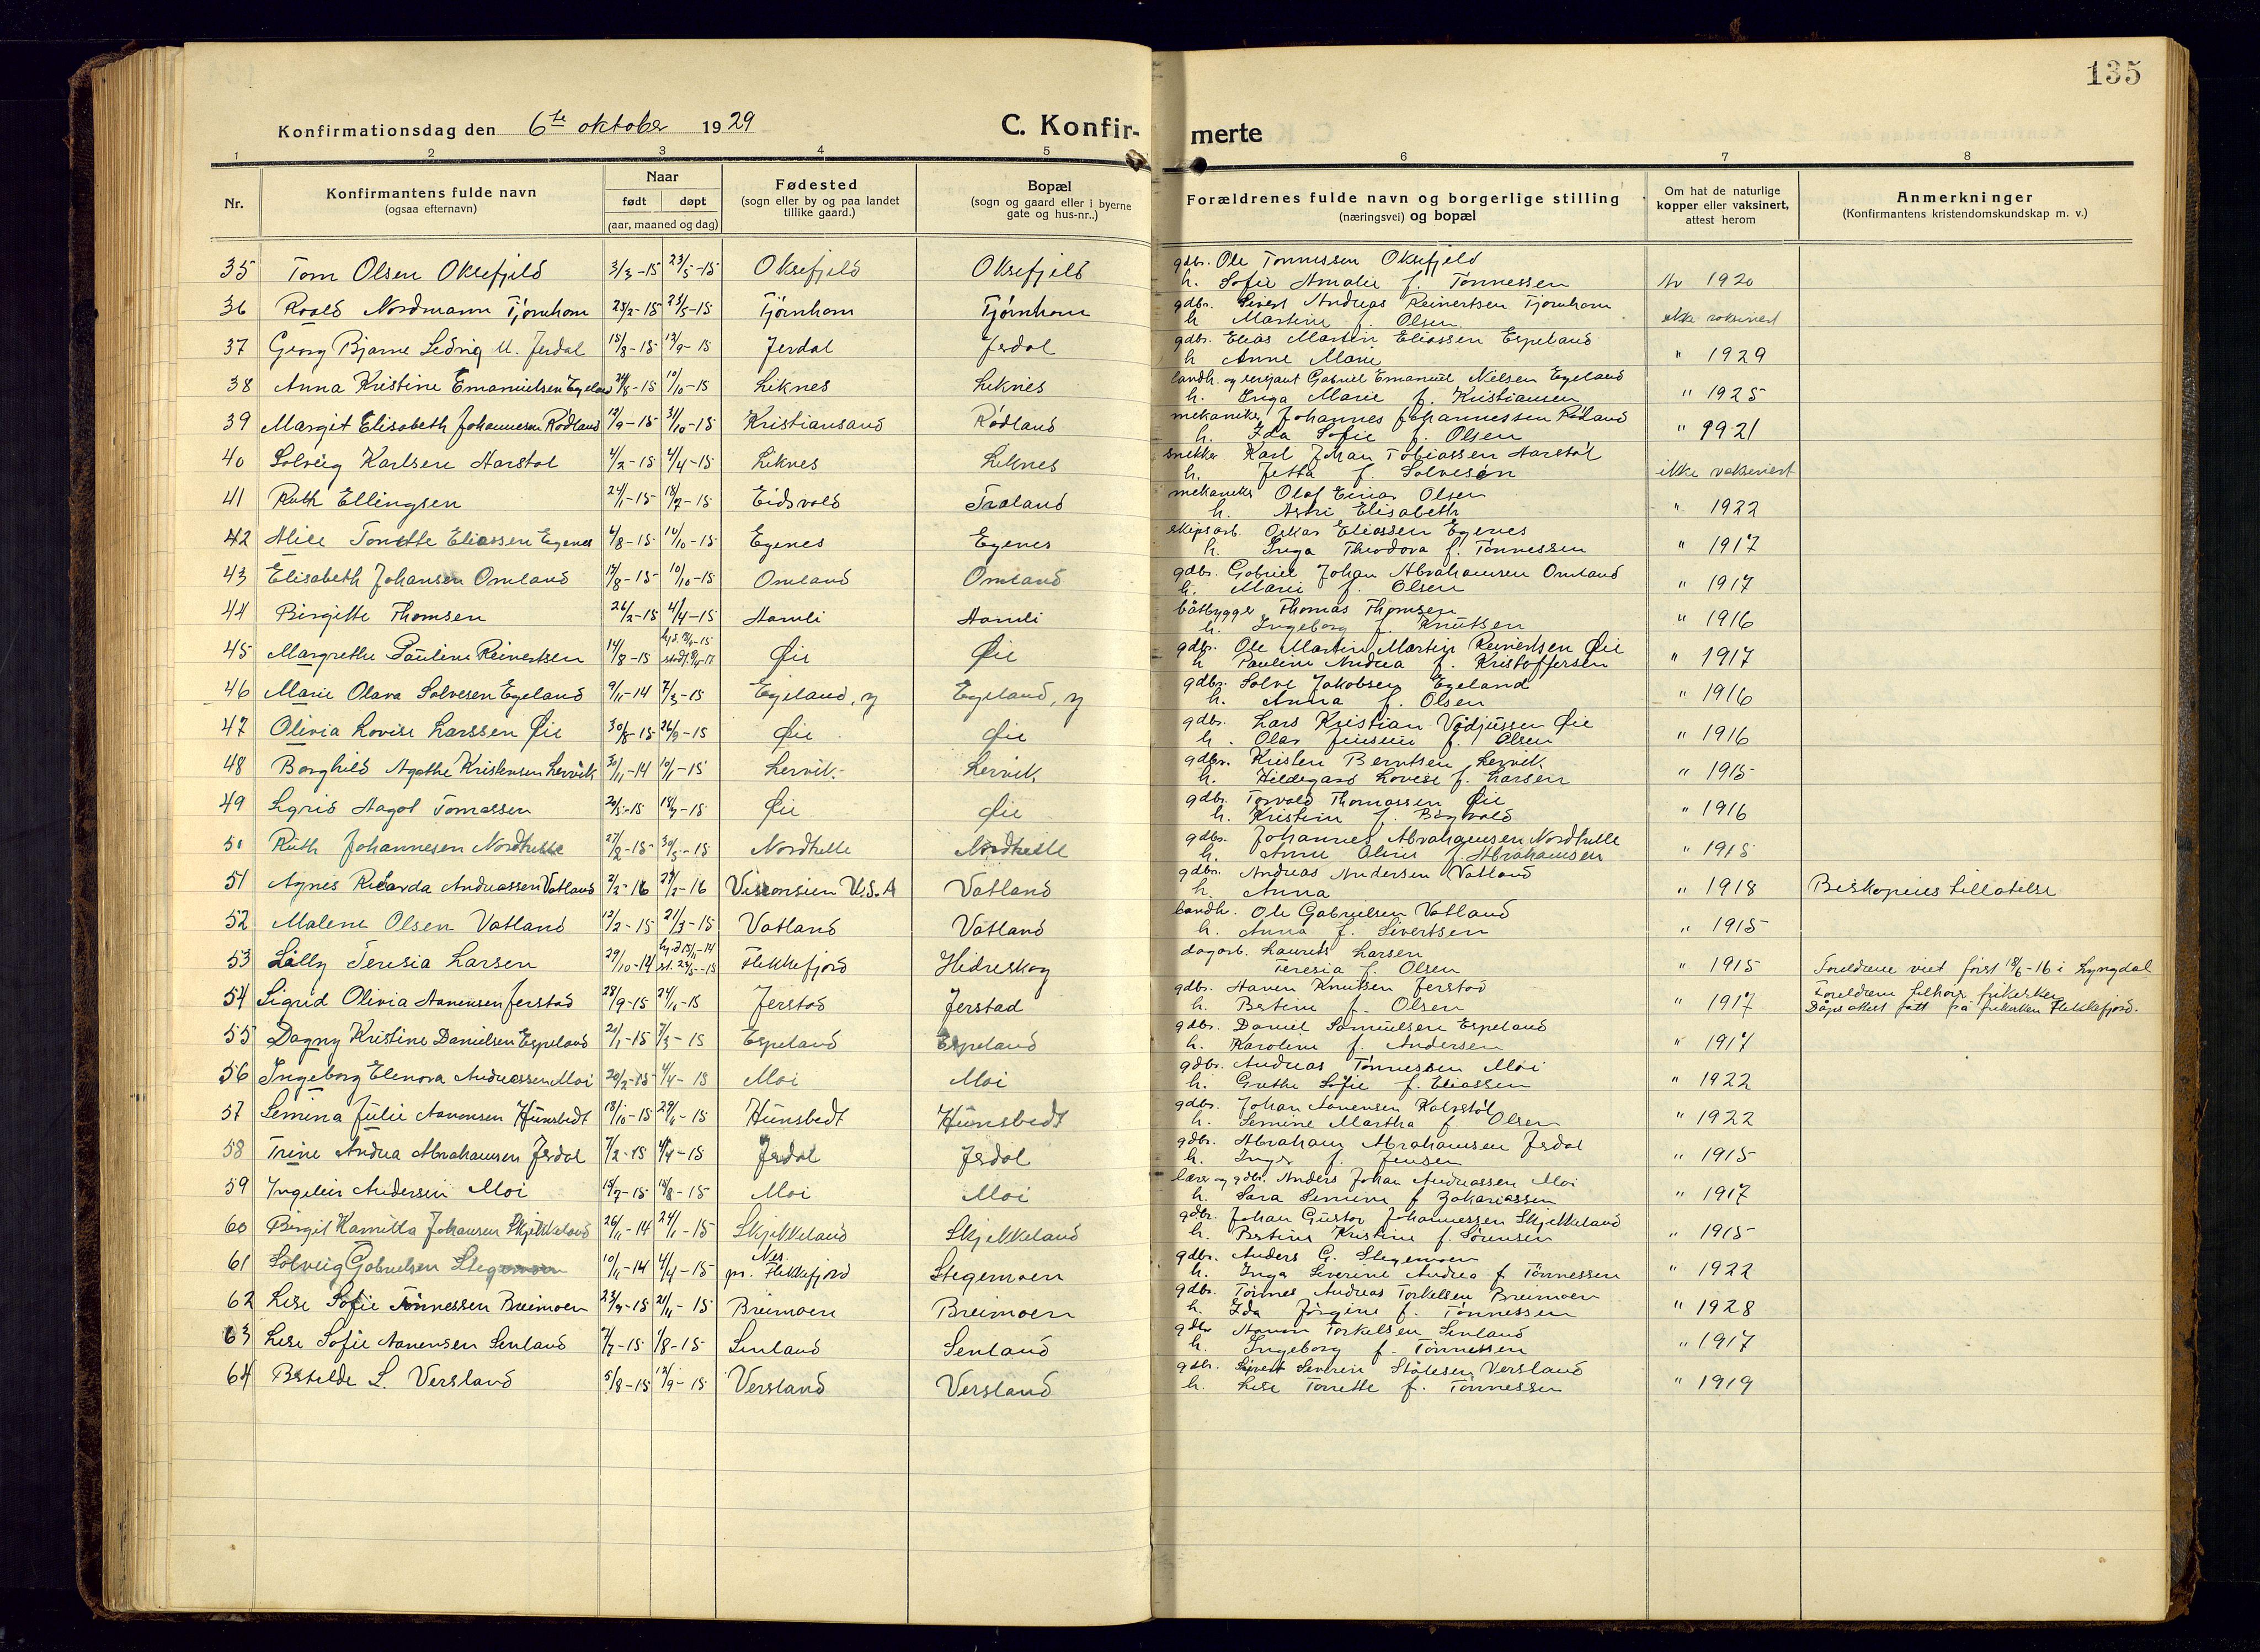 135
Konfirmationsdag den 6te oktober 1929
C. Konfir-merte
1 2 3 4 5 6 7 8
Nr.
Konfirmantens fulde navn
(ogsaa efternavn)
Naar
født døpt
(aar, maaned og dag)
Fødested
(sogn eller by og paa landet
tillike gaard.)
Bopæl
(sogn og gaard eller i byerne
gate og hus-nr..)
Forældrenes fulde navn og borgerlige stilling
(næringsvei) og bopæl
Om hat de naturlige
kopper eller vaksinert,
attest herom
Anmerkninger
(Konfirmantens kristendomskundskap m. v.)
35 Tom Olsen Oksefjeld 3/3-15 23/5-15 Oksefjeld Oksefjeld gdbr. Ole Tønnessen Oksefjeld
h. Sofie Amalie f. Tønnessen 1920
36 Roald Nordmann Tjørnhom 25/2-15 23/5-15 Tjørnhom Tjørnhom gdbr. Sivert Andreas Reinertsen Tjørnhom
h Martine f. Olsen ikke vaksinert
37 Georg Bjarne Ledvig M. Jerdal 15/8-15 12/9-15 Jerdal Jerdal gdbr. Elias Martin Eliassen Espeland
h Anne Marie " 1929
38 Anna Kristine Emanuelsen Egeland 24/8-15 10/10-15 Liknes Liknes landh. og serjant Gabriel Emanuel Nielsen Egeland
h. Inga Marie f. Kristiansen " 1925
39 Margit Elisabeth Johannesen Rødland 12/9-15 31/10-15 Kristiansand Rødland mekaniker Johannes Johannessen Rødland
h. Ida Sofie f. Olsen " 1921
40 Solveig Karlsen Aarstøl 4/2-15 4/4-15 Liknes Liknes snekker Karl Johan Tobiassen Aarstøl
h. Jetta f. Solvesen ikke vaksinert
41 Ruth Ellingsen 24/1-15 18/7-15 Eidsvold Træland mekaniker Olaf Einar Olsen
h. Astri Elisabeth " 1922
42 Alice Tonette Eliassen Egenes 6/8-15 10/10-15 Egenes Egenes skipsarb. Oskar Eliassen Egenes
h. Inga Theodora f. Tønnessen " 1917
43 Elisabeth Johansen Omland 12/8-15 10/10-15 Omland Omland gdbr. Gabriel Johan Abrahamsen Omland
h. Marie f. Olsen " 1917
44 Birgitte Thomsen 26/2-15 4/4-15 Aamli Aamli båtbygger Thomas Thomsen
h. Ingeborg f. Knutsen " 1916
45 Margrethe Pauline Reinertsen 14/8-15 Øie Øie gdbr. Ole Martin Martin Reinertsen Øie
h Pauline Andrea f. Kristoffersen " 1917
46 Marie Olava Solvesen Egeland 9/11-14 7/3-15 Egeland, y Egeland, y gdbr. Solve Jakobsen Egeland
h. Anna f. Olsen " 1916
47 Olivia Lovise Larssen Øie 30/8-15 26/9-15 Øie Øie gdbr. Lars Kristian Vådjussen Øie
h. Olav Jensine f. Olsen " 1916
48 Borghild Agathe Kristensen Lervik 30/11-14 10/1-15 Lervik Lervik gdbr. Kristen Berntsen Lervik
h. Hildegard Lovise f. Larsen " 1915
49 Sigrid Aagot Tomassen 20/5-15 18/7-15 Øie Øie gdbr. Torvald Thomassen Øie
h. Kristine f. Bøgvald " 1916
50 Ruth Johannesen Nordhelle 27/2-15 30/5-15 Nordhelle Nordhelle gdbr. Johannes Abrahamsen Nordhelle
h. Anne Oline f. Abrahamsen " 1915
51 Agnes Ricarda Andreassen Vatland 2/2-16 27/2-16 Visconsien U.S.A Vatland gdbr. Andreas Andersen Vatland
h. Anna " 1918 Biskopens tillatelse
52 Malene Olsen Vatland 12/2-15 21/3-15 Vatland Vatland landh. Ole Gabrielsen Vatland
h. Anna f. Sivertsen " 1915
53 Lilly Teresia Larsen 29/10-14 hj.d 15/11-14 st. 23/5-15 Flekkefjord Hidreskog dagarb. Laurits Larsen
Teresia f. Olsen " 1915 Foreldrene viet først 18/6-16 i Lyngdal
54 Sigrid Olivia Aanensen Jerstad 28/9-15 24/10-15 Jerstad Jerstad gdbr. Aanen Knutsen Jerstad
h. Bertine f. Olsen " 1917 Foreldrene tilhører frikirken
Dåpsattest fått fra frikirken Flekkefjord.
55 Dagny Kristine Danielsen Espeland 21/1-15 7/3-15 Espeland Espeland gdbr. Daniel Samuelsen Espeland
h. Karoline f. Andersen " 1917
56 Ingeborg Elenora Andreassen Moi 20/2-15 4/4-15 Moi Moi gdbr. Andreas Tønnessen Moi
h. Grethe Sofie f. Eliassen " 1922
57 Semina Julie Aanensen Hunsbedt 18/10-15 29/11-15 Hunsbedt Hunsbedt gdbr. Johan Aanensen Kalvstøl
h. Semine Martha f. Olsen " 1922
58 Trine Andrea Abrahamsen Jerdal 7/2-15 4/4-15 Jerdal Jerdal gdbr. Abraham Abrahamsen Jerdal
h. Inger f. Jensen " 1915
59 Ingeleiv Andersen Moi 15/7-15 15/8-15 Moi Moi lærer og gdbr. Anders Johan Andreassen Moi
h. Sara Semine f. Zakariassen " 1917
60 Birgit Kamilla Johansen Skjekkeland 26/11-14 24/1-15 Skjekkeland Skjekkeland gdbr. Johan Gustav Johannessen Skjekkeland
h. Bertine Kristine f. Sørensen " 1915
61 Solveig Gabrielsen Stegemoen 10/11-14 4/4-15 Nes pr. Flekkefjord Stegemoen gdbr. Anders G. Stegemoen
h. Inga Severine Andrea f. Tønnessen " 1922
62 Lise Sofie Tønnessen Breimoen 23/9-15 21/11-15 Breimoen Breimoen gdbr. Tønnes Andreas Torkelsen Breimoen
h. Ida Jørgine f. Tønnessen " 1928
63 Lise Sofie Aanensen Senland 7/7-15 1/8-15 Senland Senland gdbr Aanen Torkelsen Senland
h. Ingeborg f. Tønnessen " 1917
64 Betilde S. Versland 5/8-15 12/9-15 Versland Versland gdbr. Sivert Severin Stålesen Versland
h. Lise Tonette f. Tønnessen " 1919